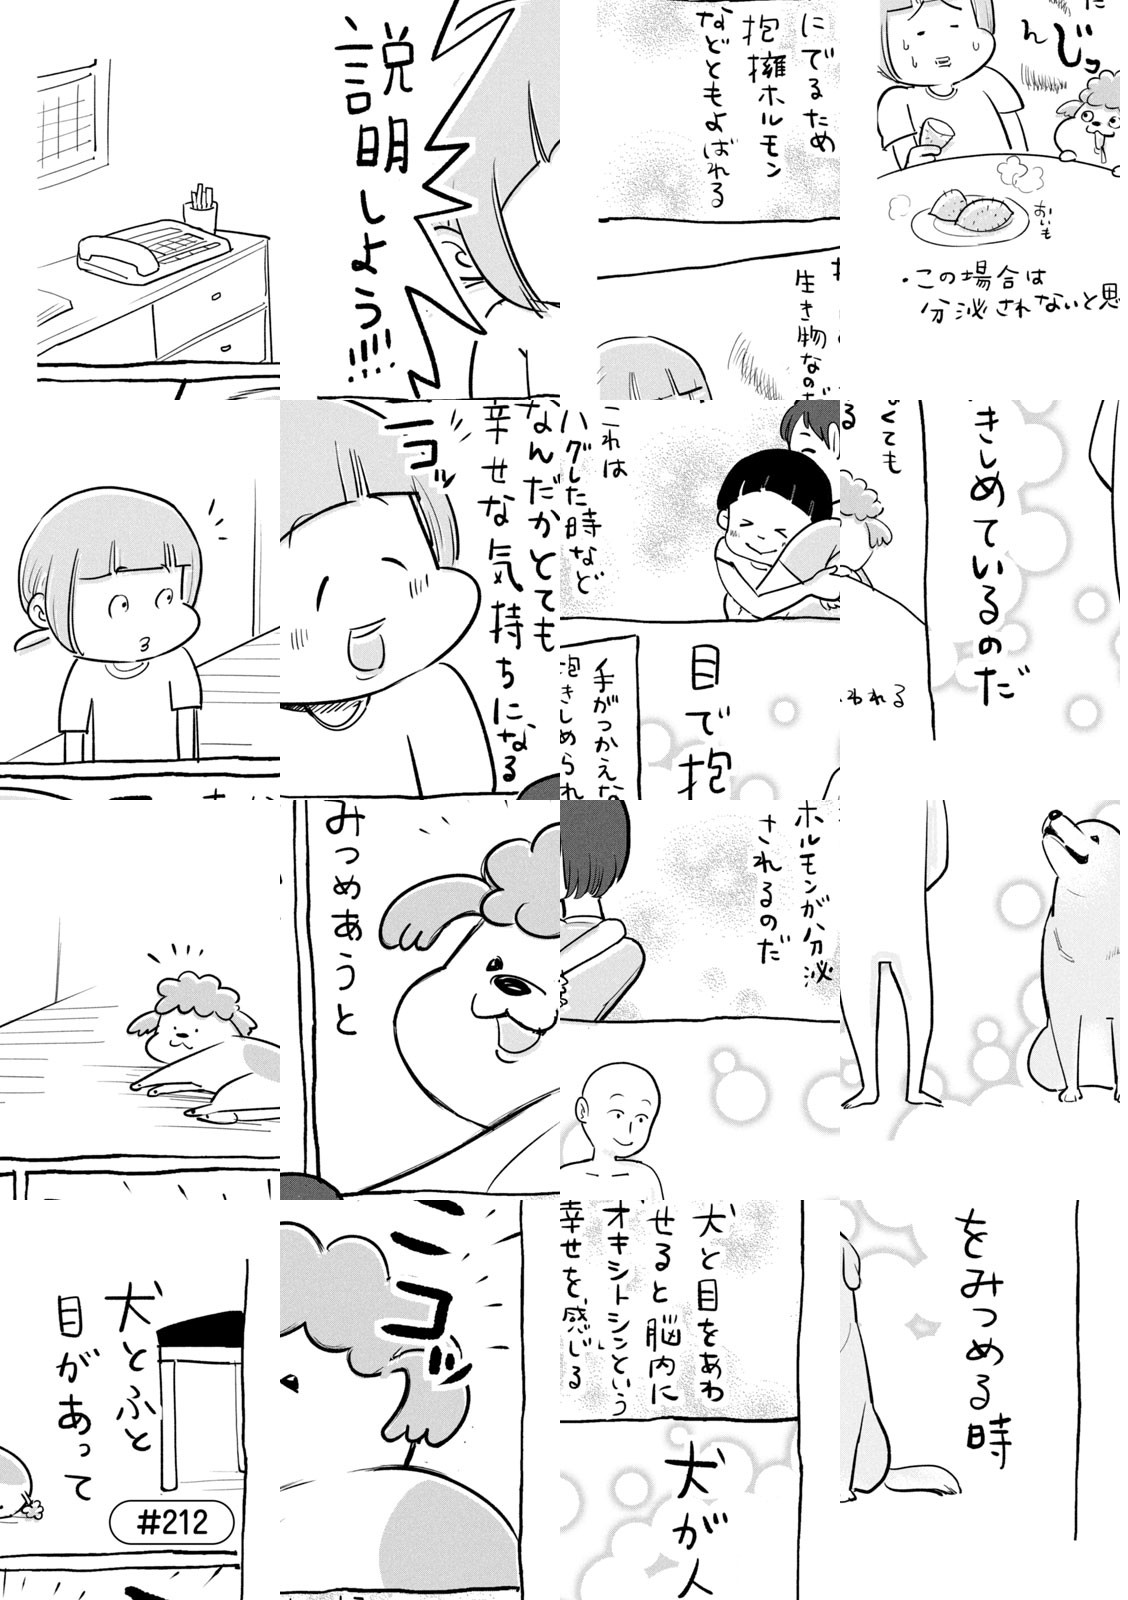 説明しよう!!!!
にでるため
抱擁ホルモン
などともよばれる
生き物なの
じっ
ん
おいも
・この場合は
分泌されないと思
ニコッ
なんだかとても
幸せな気持ちになる
ハグした時など
これは
目で抱
手がつかえな
抱きしめられ
くても
る
きしめているのだ
われる
みつめあうと
ホルモンが分泌
されるのだ
犬とふと
目があって
#212
ニコッ
犬と目をあわ
せると脳内に
オキシトシンという
幸せを感じる
犬が人
をみつめる時